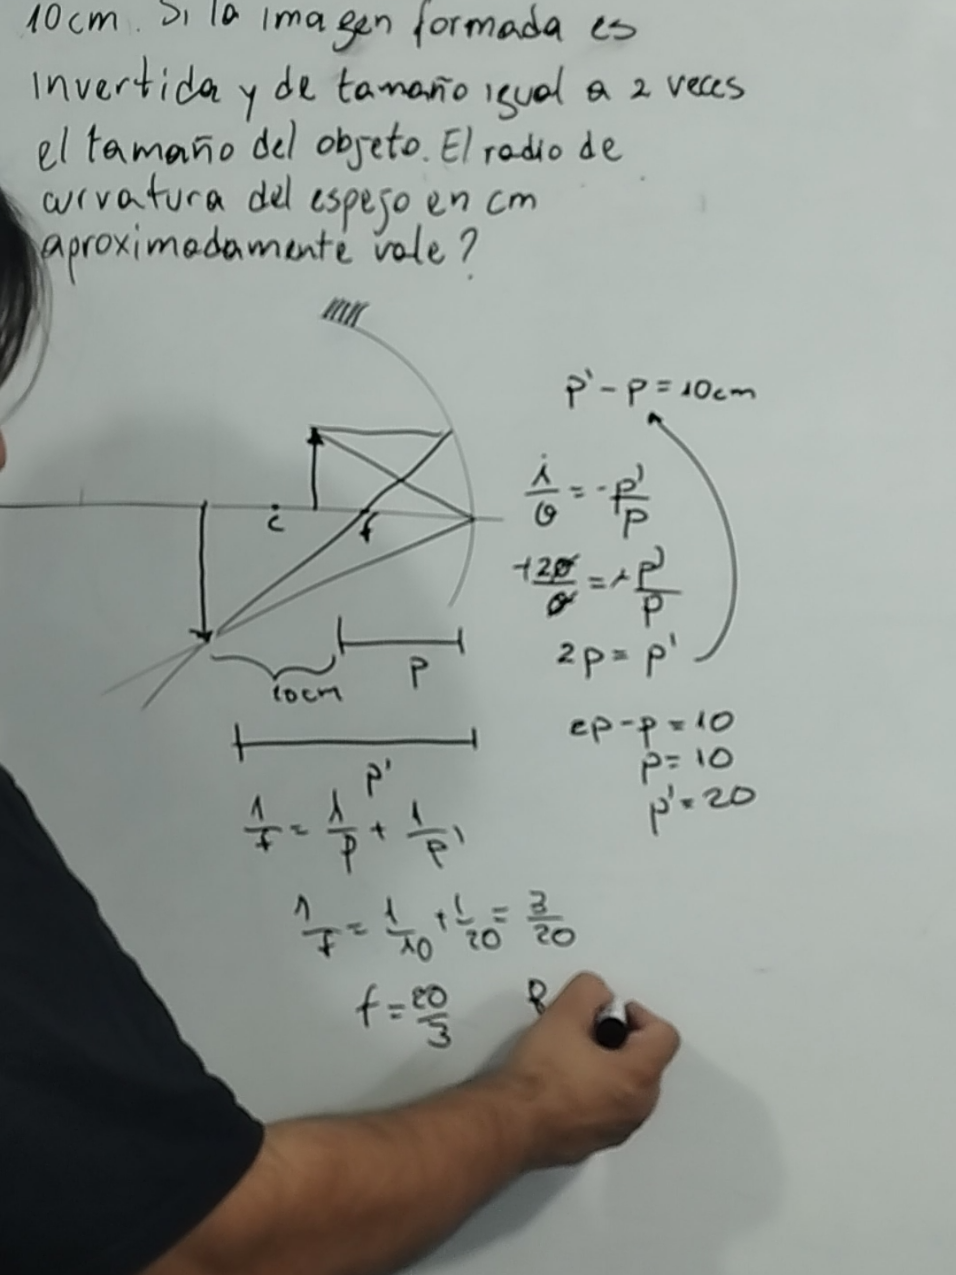 10cm. Si la imagen formada es
invertida y de tamaño igual a 2 veces
el tamaño del objeto. El radio de
curvatura del espejo en cm
aproximadamente vale?
p' - p = 10cm
i/o = -p'/p
+2o/o = +p'/p
2p = p'
2p - p = 10
p = 10
p' = 20
c
f
10cm
p
p'
1/f = 1/p + 1/p'
1/f = 1/10 + 1/20 = 3/20
f = 20/3